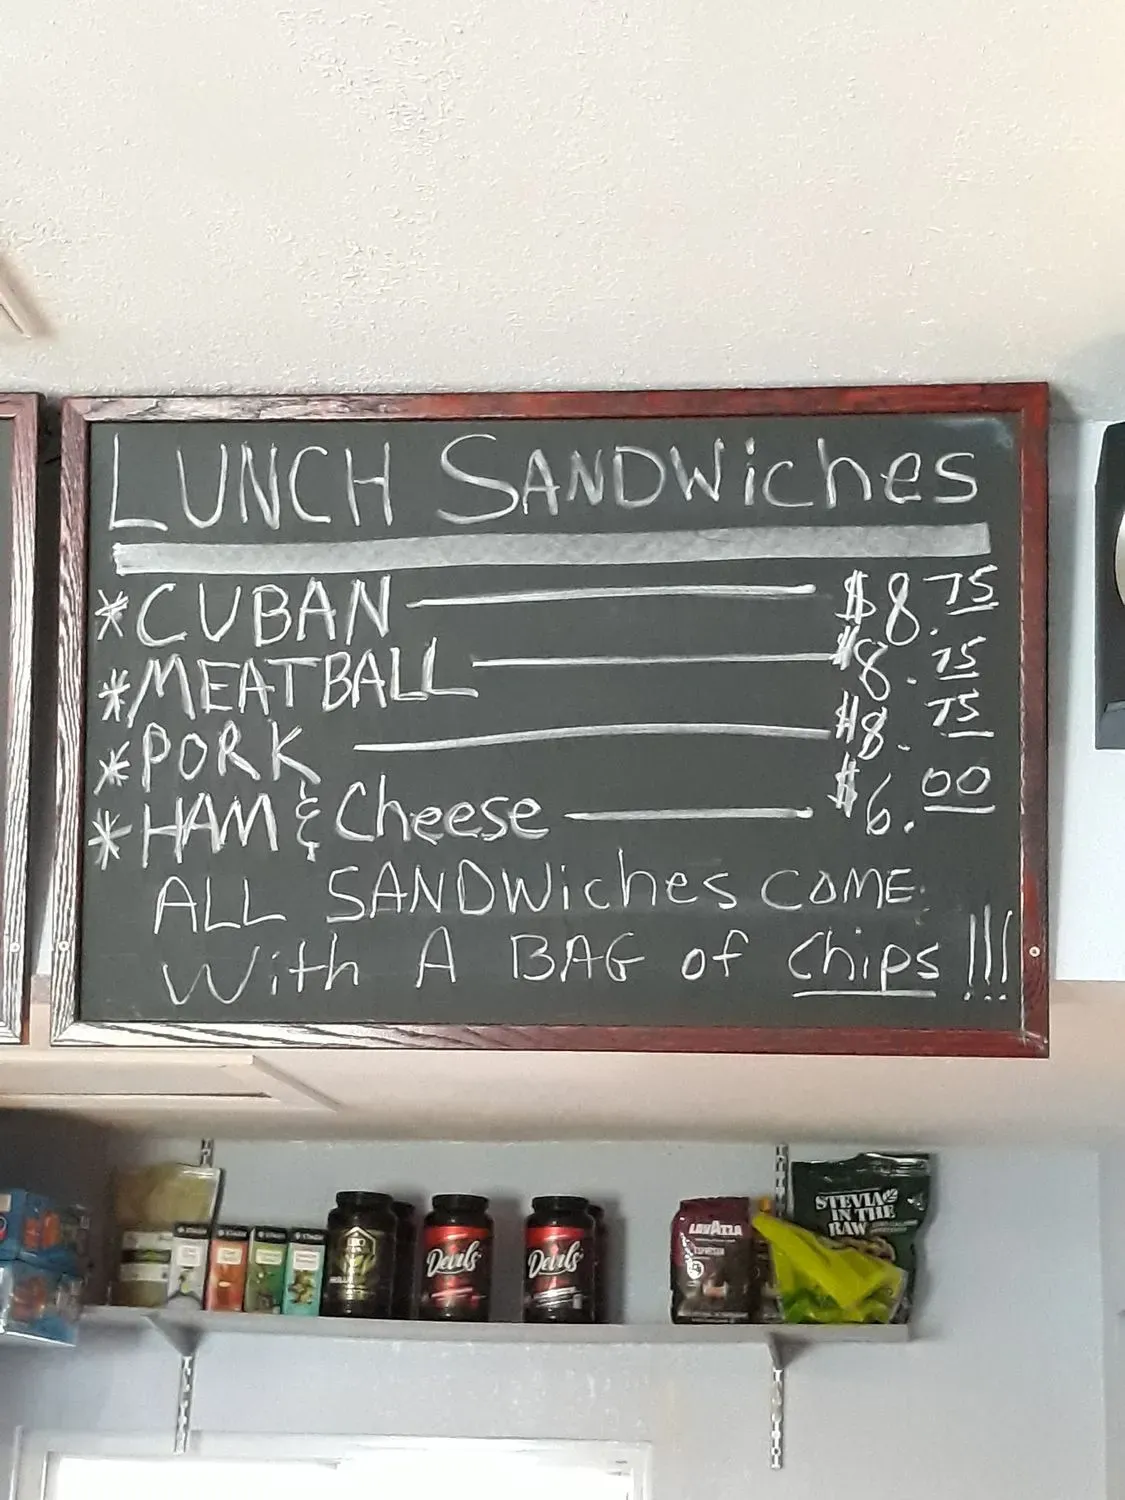 LUNCH SANDWiches
*CUBAN $8.75
*MEATBALL $8.75
*PORK $8.75
*HAM & Cheese $6.00
ALL SANDWiches COME
With A BAG of Chips !!!
Devils
Devils
LAVAZZA
ESPRESSO
STEVIA
IN THE
RAW